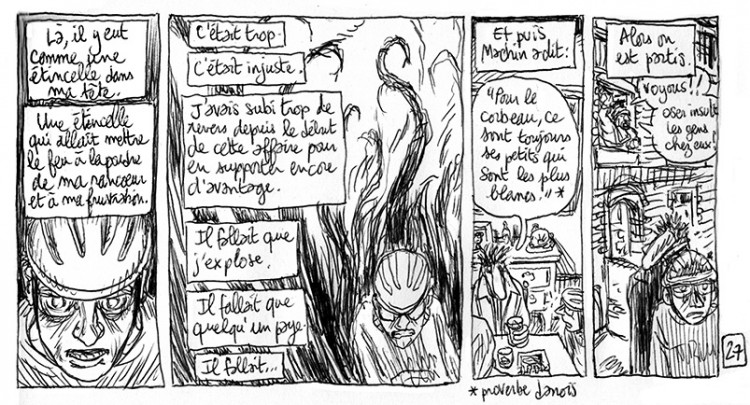 Là, il y eut
comme une
étincelle dans
ma tête.
Une étincelle
qui allait mettre
le feu à la poudre
de ma rancoeur
et à ma frustration.
C'était trop.
C'était injuste.
J'avais subi trop de
revers depuis le début
de cette affaire pour
en supporter encore
d'avantage.
Il fallait que
j'explose.
Il fallait que
quelqu'un paye.
Il fallait...
Et puis
Machin a dit:
"Pour le
corbeau, ce
sont toujours
ses petits qui
sont les plus
blancs." *
* proverbe danois
Alors on
est partis.
Voyous!!
oser insult
les gens
chez eux!
27